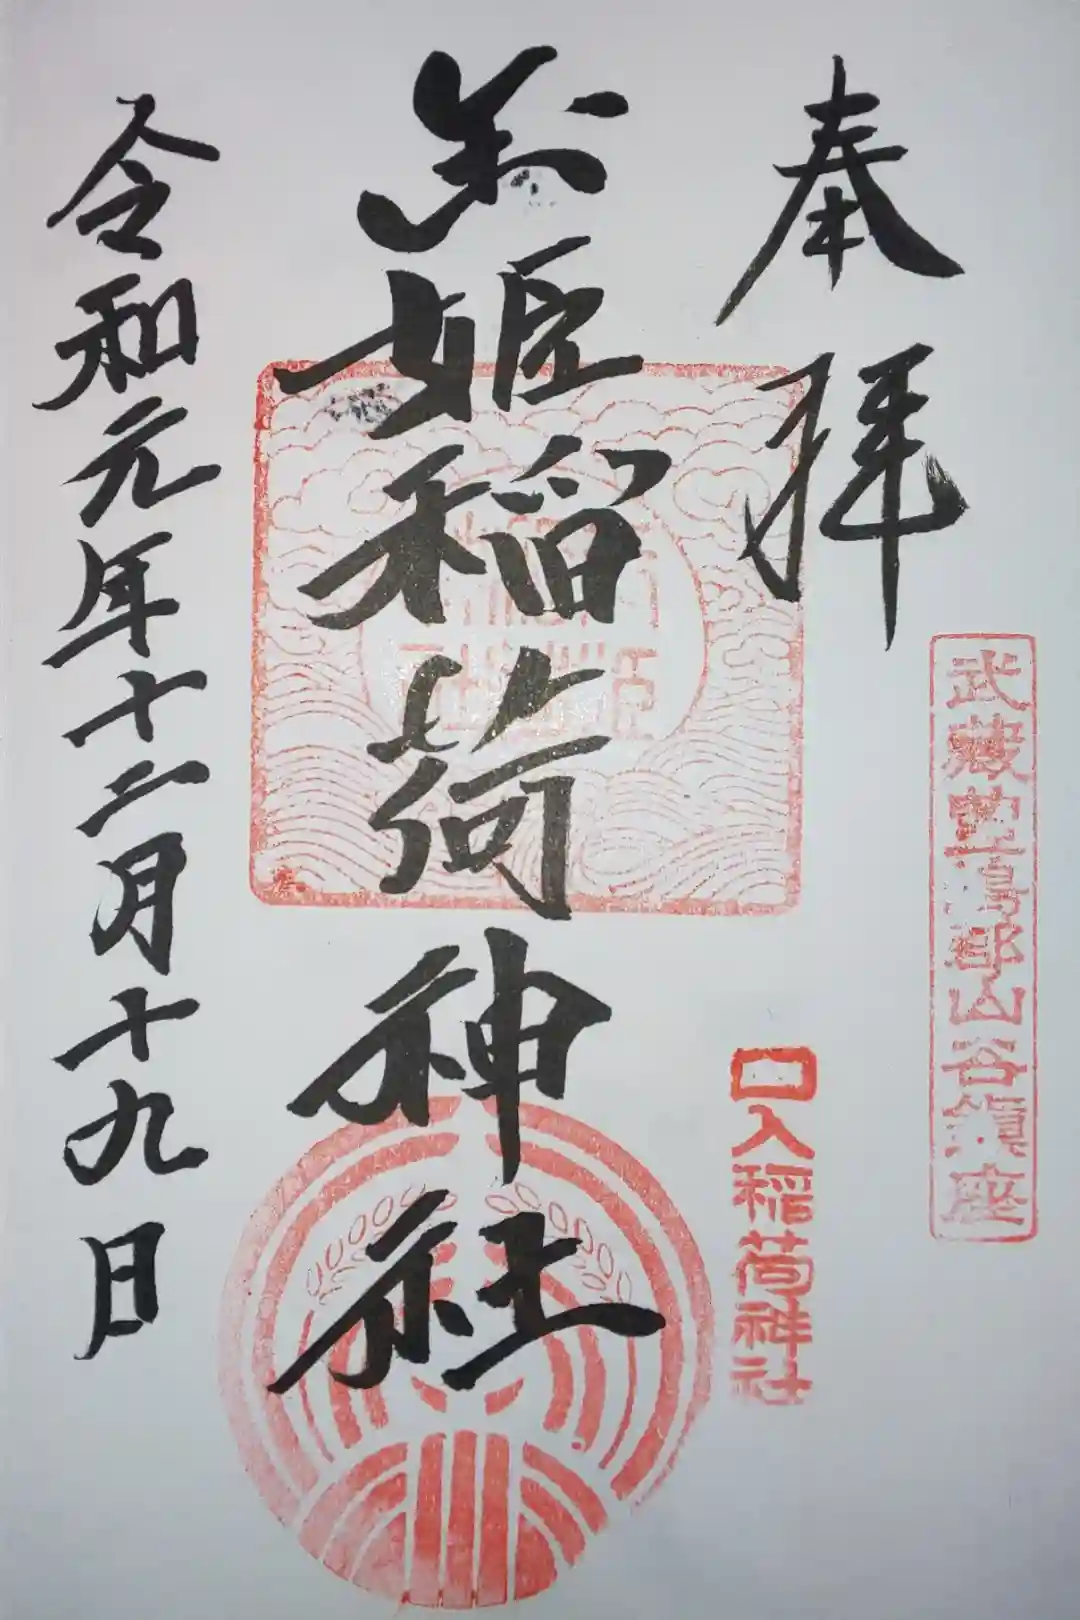 奉拝
武蔵豊嶋郡山谷鎮座
口入稲荷神社
玉姫稲荷神社
令和元年十二月十九日